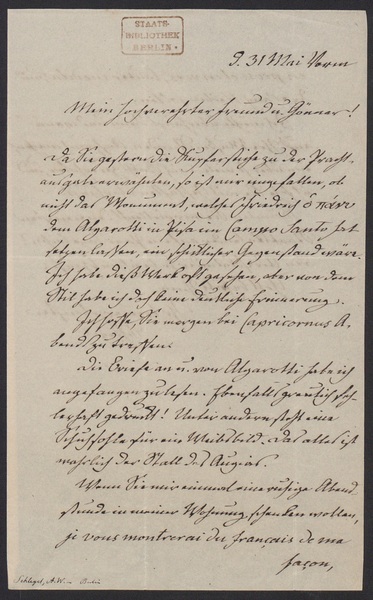 STAATS-
BIBLIOTHEK
BERLIN
d. 31 Mai Vorm
Mein hochverehrter Freund u. Gönner!
Da Sie gestern die Kupferstiche zu der Pracht-
ausgabe erwähnten, so ist mir eingefallen, ob
nicht das Monument, welches Friedrich ὁ πάνυ
dem Algarotti in Pisa im Campo Santo hat
setzen lassen, ein schicklicher Gegenstand wäre.
Ich habe dieß Werk oft gesehen, aber von dem
Stil habe ich doch keine deutliche Erinnerung.
Ich hoffe, Sie morgen bei Capricornus A-
bends zu treffen.
Die Briefe an u. von Algarotti habe ich
angefangen zu lesen. Ebenfalls greulich feh-
lerhaft gedruckt! Unter andern steht eine
Schuhsohle für ein Weibsbild. Das alles ist
wahrlich der Stall des Augias.
Wenn Sie mir einmal eine ruhige Abend
stunde in meiner Wohnung schenken wollen,
je vous montrerai du français de ma
façon,
Schlegel, A. W. v.